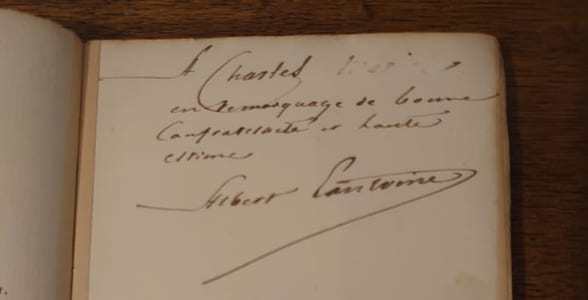 A Charles
en temoignage de bonne
Confraternité et haute
estime
Albert Lantoine